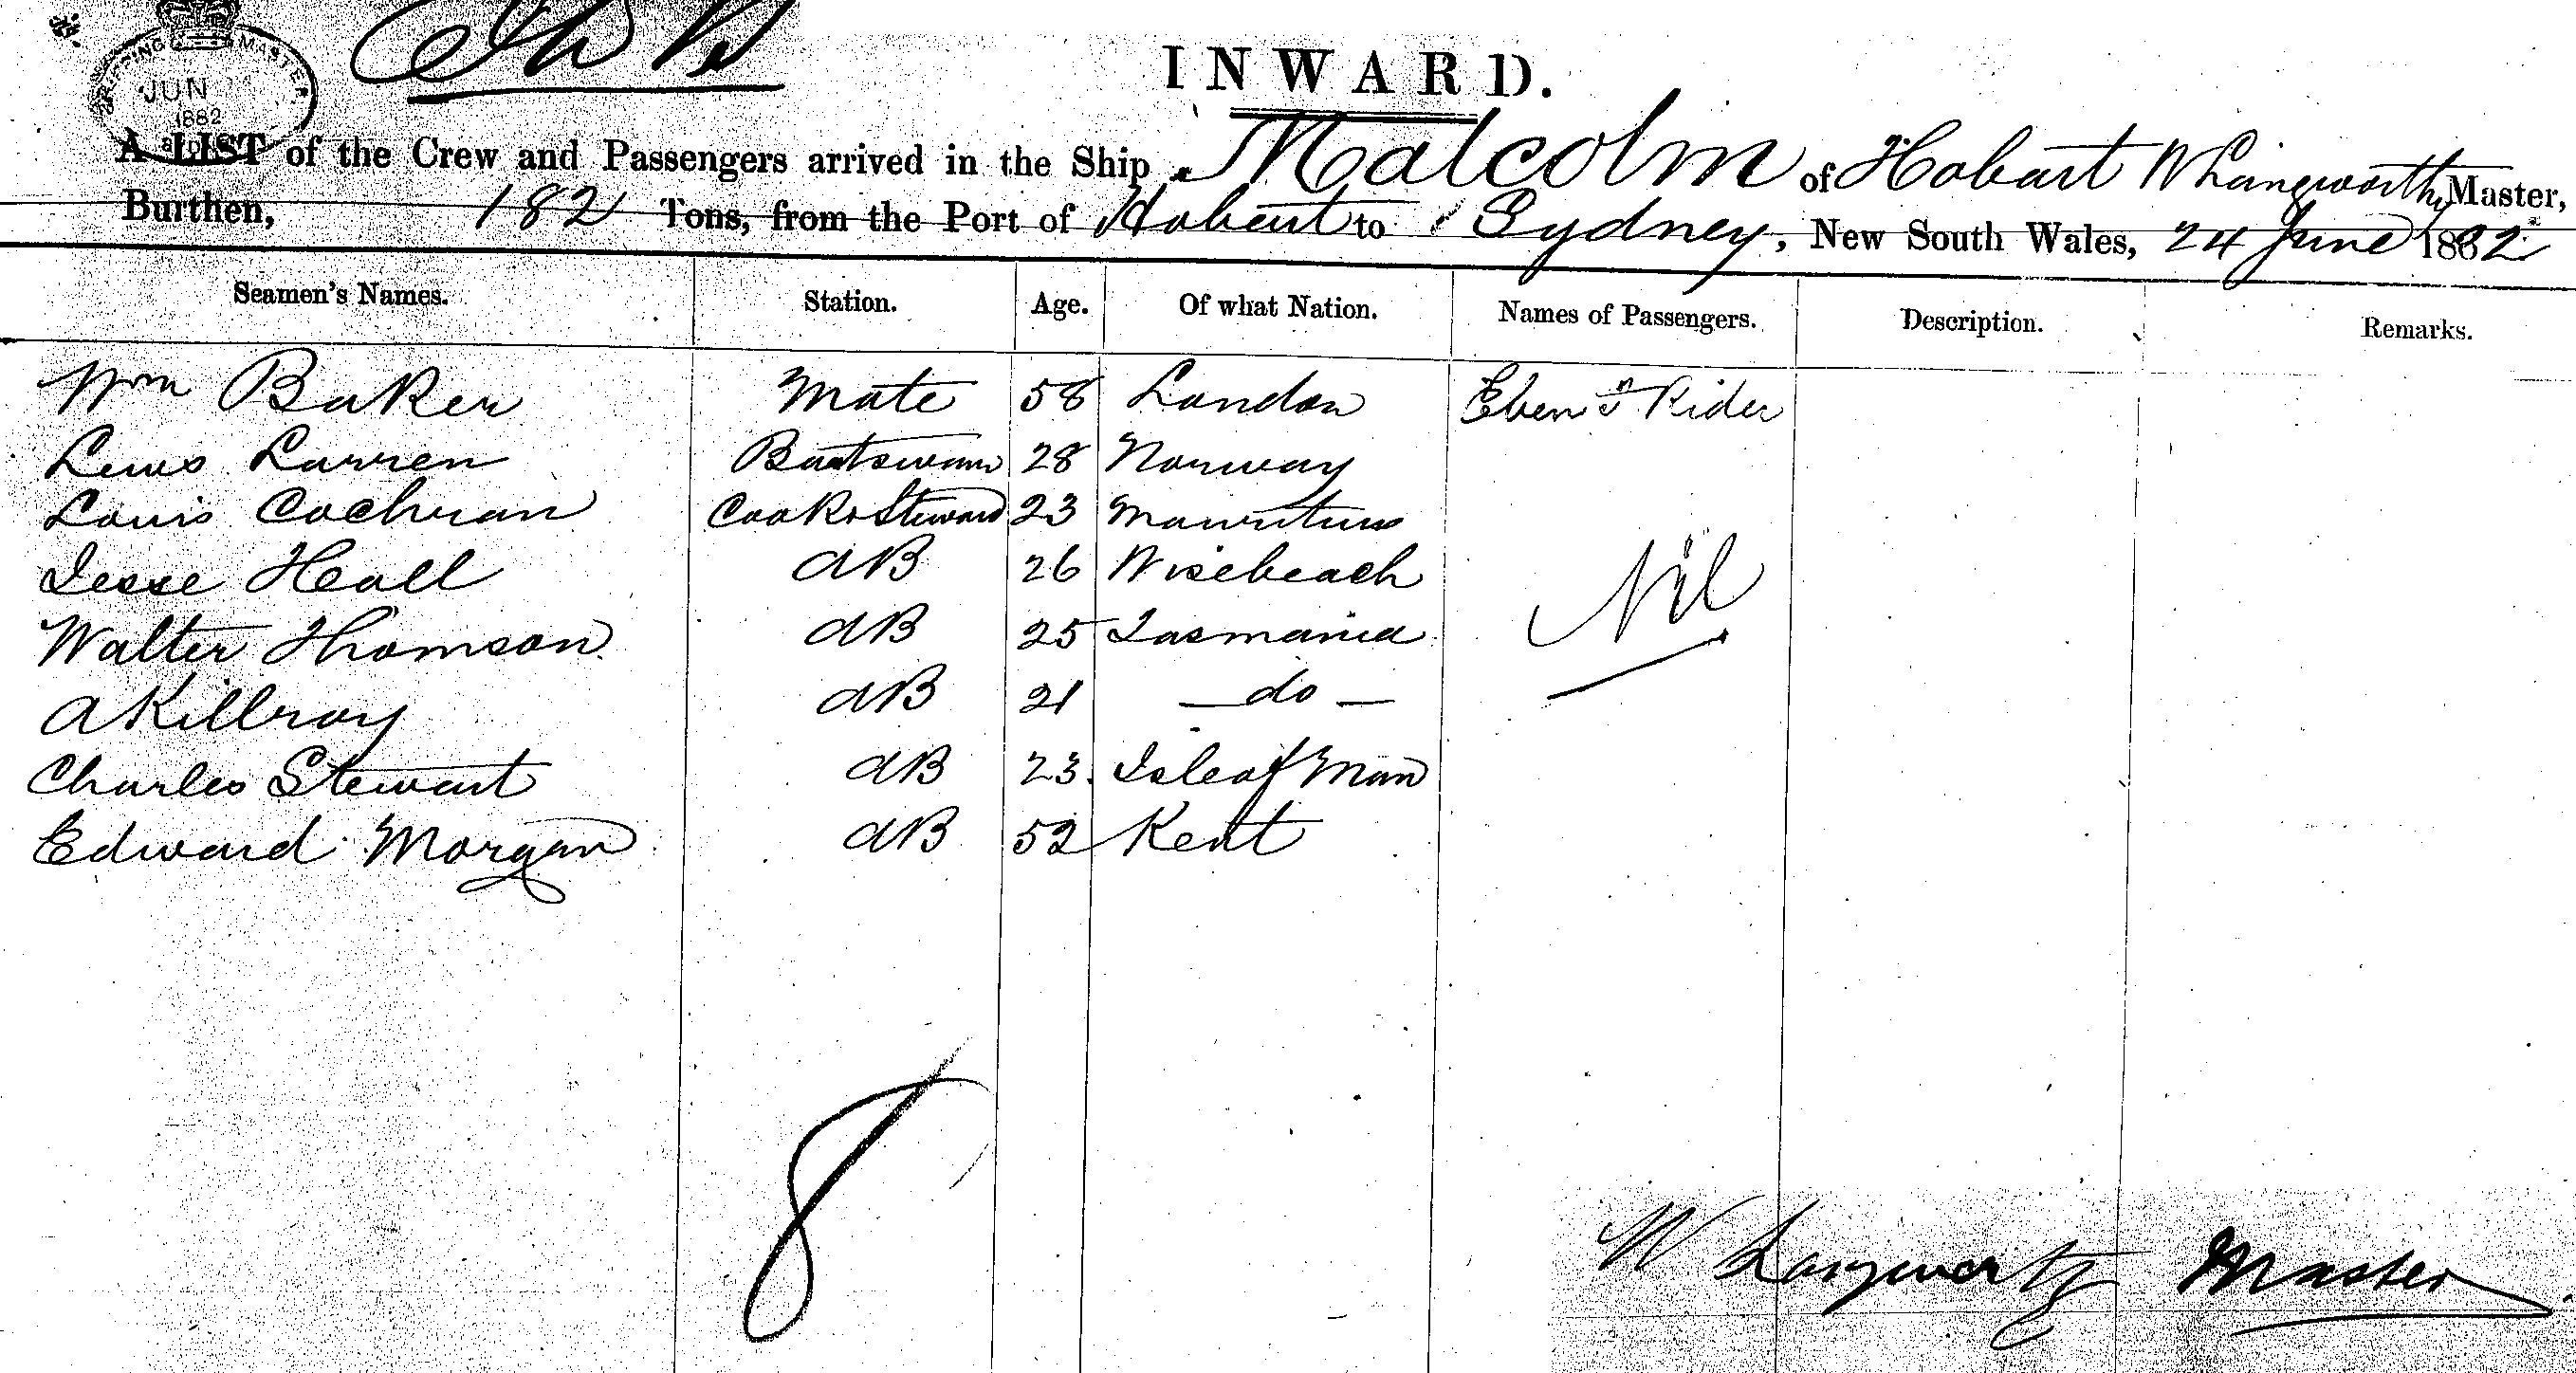 SHIPPING MASTER
JUN
1882
INWARD.
A LIST of the Crew and Passengers arrived in the Ship Malcolm of Hobart W Langworthy Master,
Burthen, 182 Tons, from the Port of Hobart to Sydney, New South Wales, 24 June 1882
Seamen's Names. Station. Age. Of what Nation. Names of Passengers. Description. Remarks.
Wm Baker Mate 58 London Ebenr Rider
Lews Larren Boatswain 28 Norway
Louis Cochran Cook & Steward 23 Mauritius
Jesse Heall AB 26 Wisebeach
Nil
Walter Thomson AB 25 Tasmania
A Killroy AB 21 — do —
Charles Stewart AB 23. Isle of Man
Edward Morgan AB 52 Kent
8
W Langworthy Master